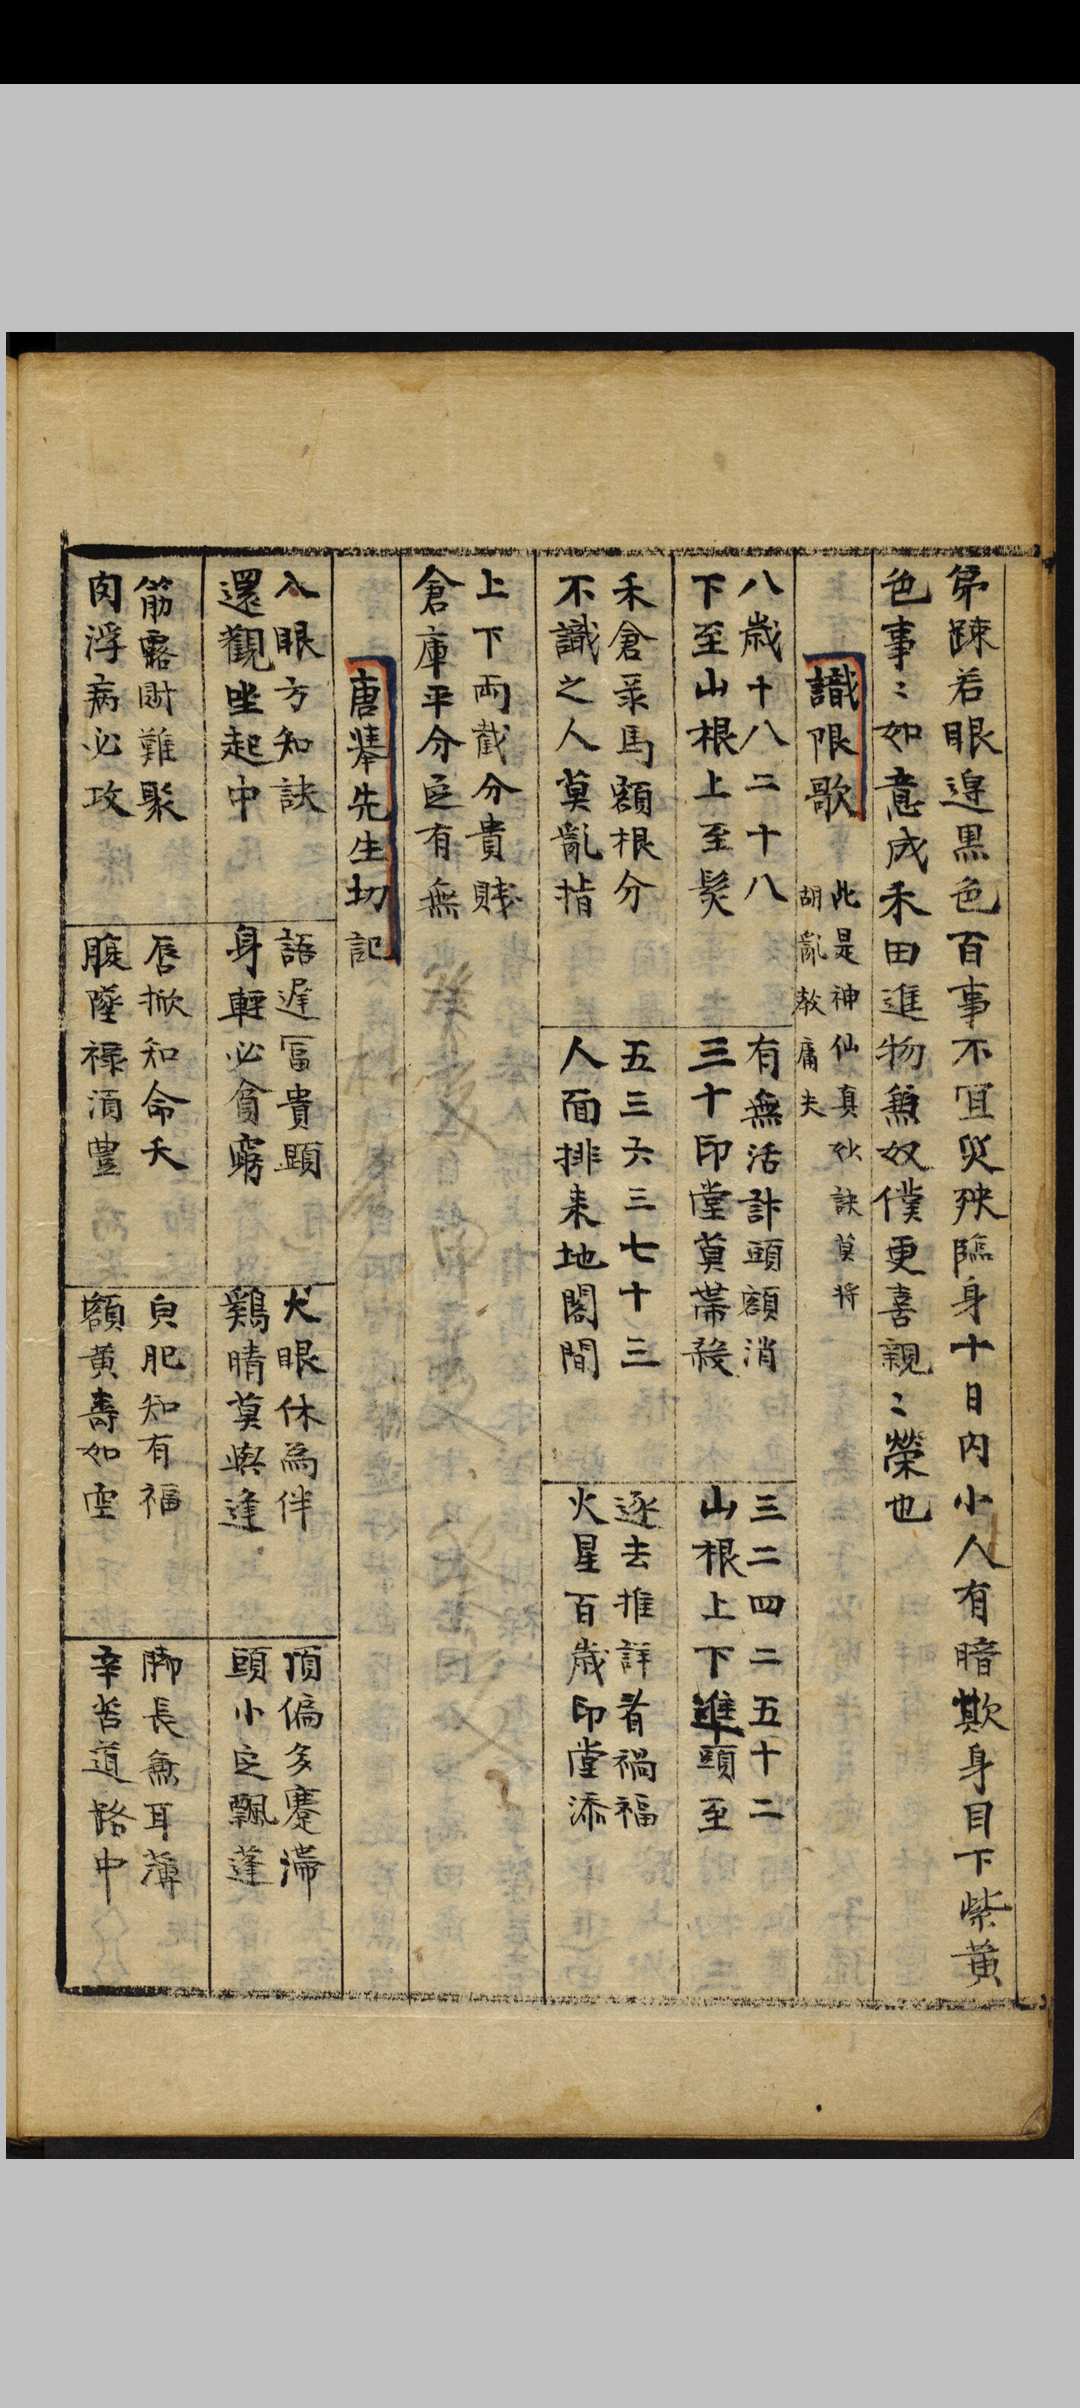 弟踈若眼邉黒色百事不宜災殃臨身十日内小人有暗欺身目下紫黄
色事〻如意成禾田進物無奴僕更喜親〻榮也
識限歌
此是神仙真玅訣莫将
胡亂教庸夫
八歳十八二十八
下至山根上至髮
有無活計頭額消
三十印堂莫帯殺
三二四二五十二
山根上下準頭至
禾倉录馬額根分
不識之人莫亂指
五三六三七十三
人面排来地閣間
逐去推詳看禍福
火星百歳印堂添
上下両截分貴賎
倉庫平分定有無
唐舉先生切記
入眼方知訣
還觀坐起中
語遅冨貴顕
身輕必貧窮
犬眼休為伴
鷄睛莫與逢
頂偏多蹇滯
頭小定飄蓬
筋露財難聚
肉浮病必攻
唇掀知命夭
腹墜禄須豊
皃肥知有福
額黄壽如空
脚長無耳薄
辛苦道路中